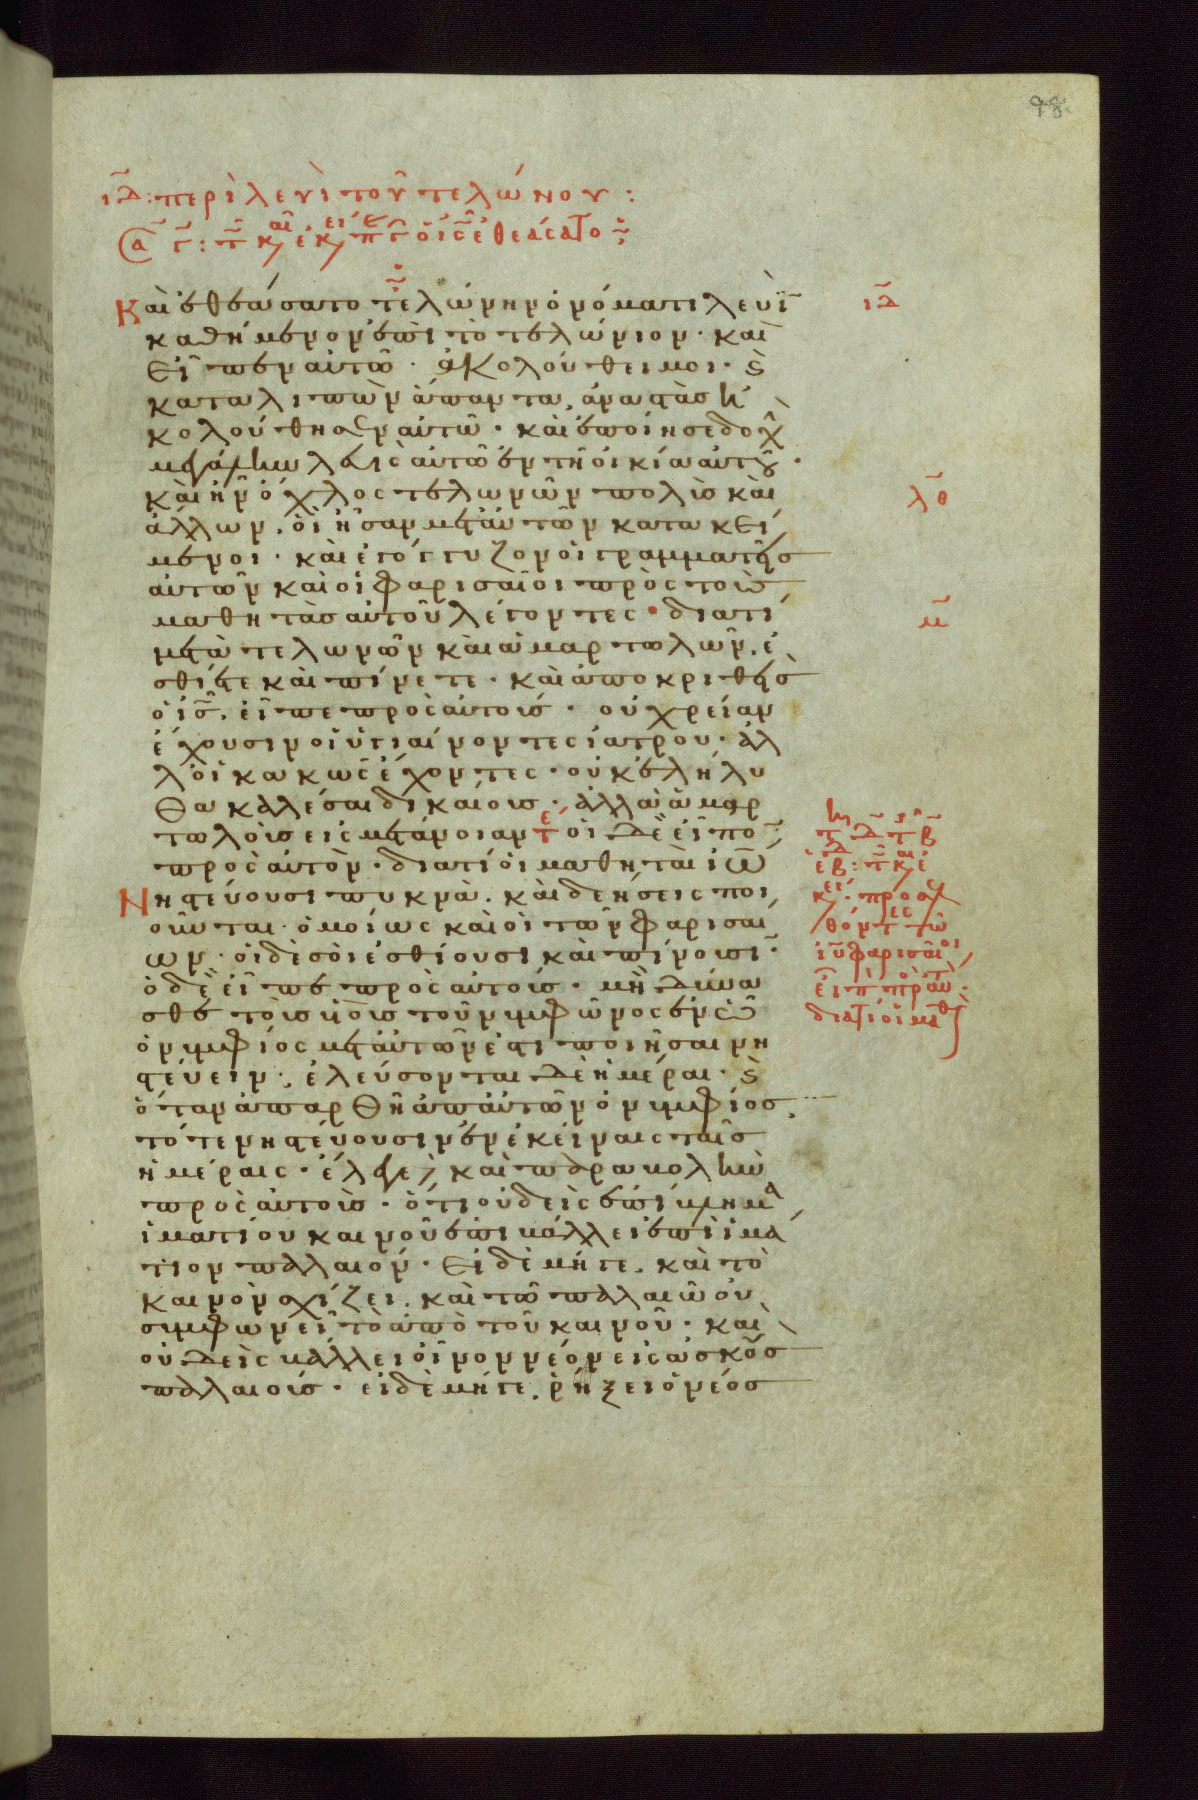 98
ιδ: περὶ λευὶ τοῦ τελώνου:
καὶ ἐθεάσατο τελώνην ὀνόματι λευῒ
ιδ
καθήμενον ἐπὶ τὸ τελώνιον· καὶ
εἶπεν αὐτῶ· ἀκολούθει μοι· ϗ
καταλιπὼν ἅπαντα, ἀναστὰς ἠ
κολούθησεν αὐτῶ· καὶ ἐποίησε δοχὴν
μεγάλην λευὶς αὐτῶ ἐν τῆ οἰκία αὐτοῦ·
καὶ ἦν ὄχλος τελωνῶν πολὺς καὶ
λθ
ἄλλων, οἳ ἦσαν μετ' αὐτῶν κατακεί
μενοι· καὶ ἐγόγγυζον οἱ γραμματεῖς
αὐτῶν καὶ οἱ φαρισαῖοι πρὸς τοὺς
μαθητὰς αὐτοῦ λέγοντες· διατί
μ
μετὰ τελωνῶν καὶ ἁμαρτωλῶν, ἐ
σθίετε καὶ πίνετε· καὶ ἀποκριθεὶς
ὁ ις, εἶπε πρὸς αὐτούς· οὐ χρείαν
ἔχουσιν οἱ ὑγιαίνοντες ἰατροῦ· ἀλ
λ' οἱ κακῶς ἔχοντες· οὐκ ἐλήλυ
θα καλέσαι δικαίους· ἀλλὰ ἁμαρ
τωλοὺς εἰς μετάνοιαν· οἱ δὲ εἶπον
πρὸς αὐτόν· διατί οἱ μαθηταὶ ιω
νηστεύουσι πυκνὰ, καὶ δεήσεις ποι
οῦνται· ὁμοίως καὶ οἱ τῶν φαρισαί
ων· οἱ δὲ σοὶ ἐσθίουσι καὶ πίνουσι·
ὁ δὲ εἶπε πρὸς αὐτούς· μὴ δύνα
σθε τοὺς υἱοὺς τοῦ νυμφῶνος ἐν ὧ
ὁ νυμφίος μετ' αὐτῶν ἐστι ποιῆσαι νη
στεύειν· ἐλεύσονται δὲ ἡμέραι· ϗ
ὅταν ἀπαρθῆ ἀπ' αὐτῶν ὁ νυμφίος,
τότε νηστεύουσιν ἐν ἐκείναις ταῖς
ἡμέραις· ἔλεγε δὲ καὶ παραβολὴν
πρὸς αὐτούς· ὅτι οὐδεὶς ἐπίβλημα
ἱματίου καινοῦ ἐπιβάλλει ἐπὶ ἱμά
τιον παλαιόν· εἰ δὲ μήγε, καὶ τὸ
καινὸν σχίζει, καὶ τῶ παλαιῶ οὐ
συμφωνεῖ τὸ ἀπὸ τοῦ καινοῦ· καὶ
οὐδεὶς βάλλει οἶνον νέον εἰς ἀσκοὺς
παλαιούς· εἰ δὲ μήγε, ῥήξει ὁ νέος